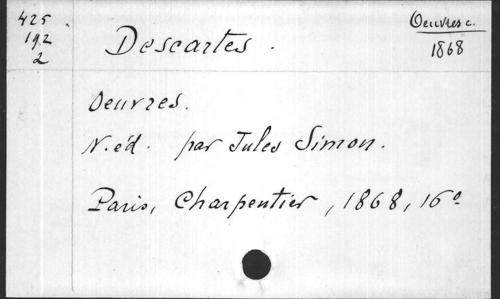 425
192
2
Descartes.
Oeuvres c.
1868
Oeuvres.
N. éd. par Jules Simon.
Paris, Charpentier, 1868, 16°